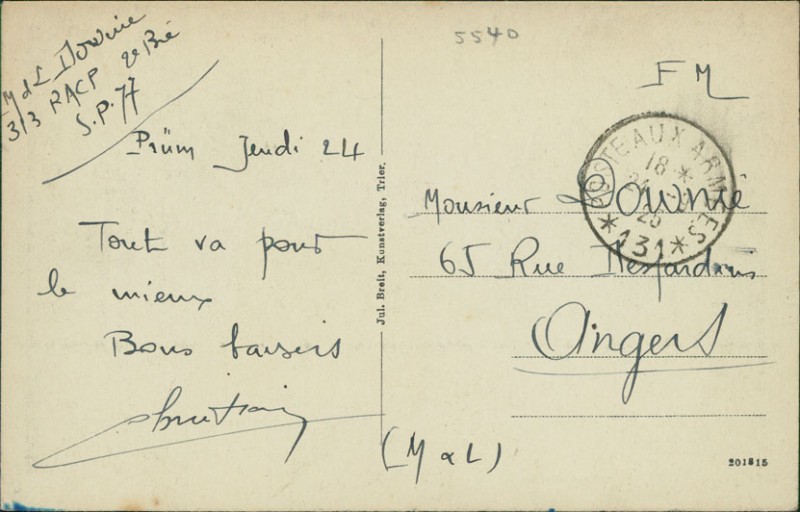 5540
M d L Dounié
313 RACP 2e Bie
S.P. 77
Prüm Jeudi 24
Tout va pour
le mieux
Bons baisers
Jul. Breit, Kunstverlag, Trier.
F M
POSTE AUX ARMEES
18 *
25
* 131 *
Monsieur Dounié
65 Rue Desjardins
Angers
(M & L)
201815